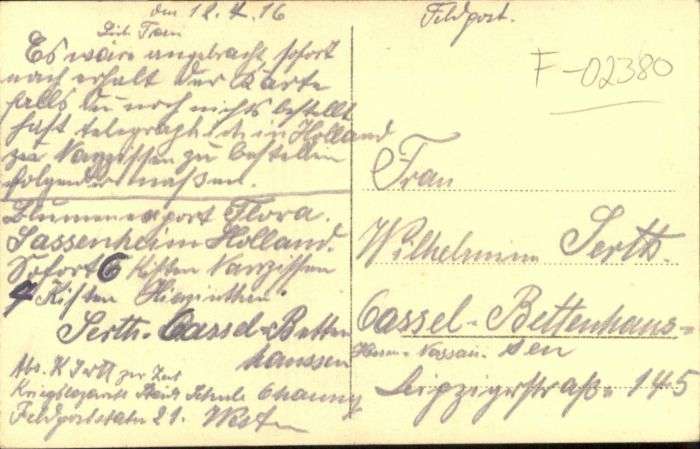 den 12.4.16
Lieb. Frau
Es wäre angebracht, sofort
nach erhalt der Karte
falls du noch nichts bestellt
hast telegraph. in Holland
zu Narzissen zu bestellen
folgendermaßen.
Blumenexport Flora.
Sassenheim Holland.
Sofort 6 Kisten Narzissen
4 Kisten Hiazinthen.
Serth. Cassel-Betten
haussen
Abs. K Serth zur Zeit
Kriegslazarett Schule Chauny
Feldpoststatn 21. Westen
Feldpost.
F-02380
Frau
Wilhelmine Serth.
Cassel-Bettenhaus=
sen
Hessen-Nassau.
Leipzigerstraße 145